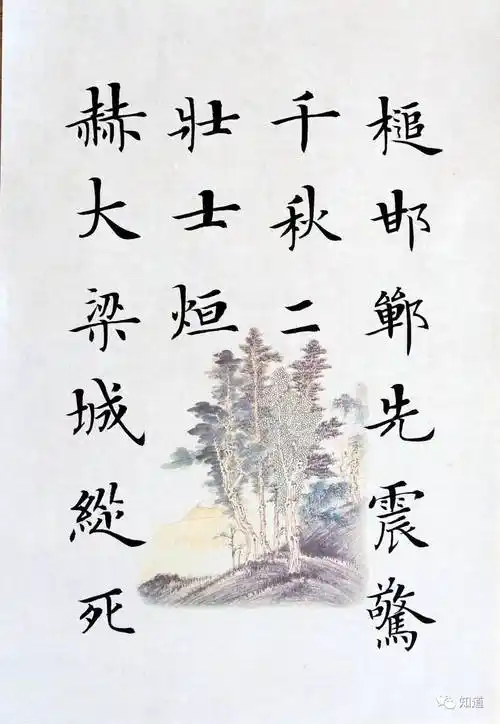 槌邯鄲先震驚
千秋二
壯士烜
赫大梁城縱死
知道